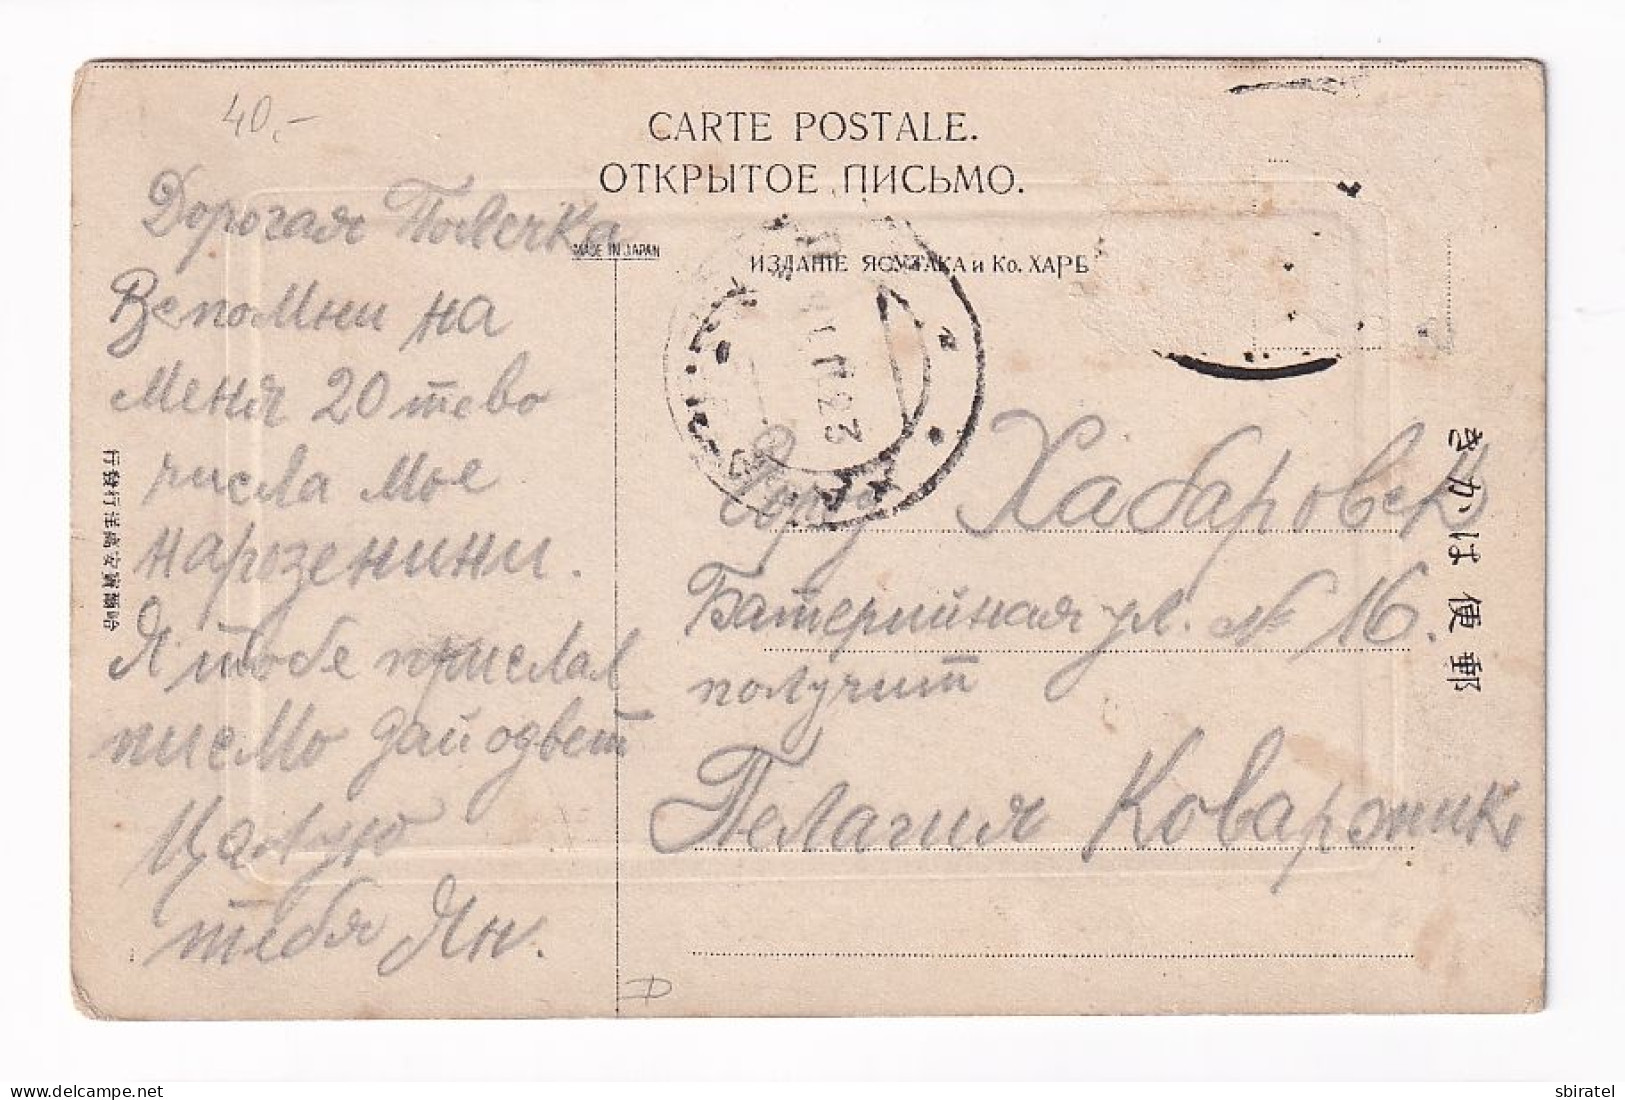 40,-
CARTE POSTALE.
ОТКРЫТОЕ ПИСЬМО.
MADE IN JAPAN
ИЗДАНІЕ ЯСУТАКА и Ко. ХАРБ
Дорогая Полечка
Вспомни на
меня 20 тово
числа мое
нарозенини.
Я тобе прислал
писмо дай одвет
Цалую
тебя Ян.
Город Хабаровск
Батерийная ул. № 16.
получит
Пелагия Коваржик
きかは便郵
D
sbiratel